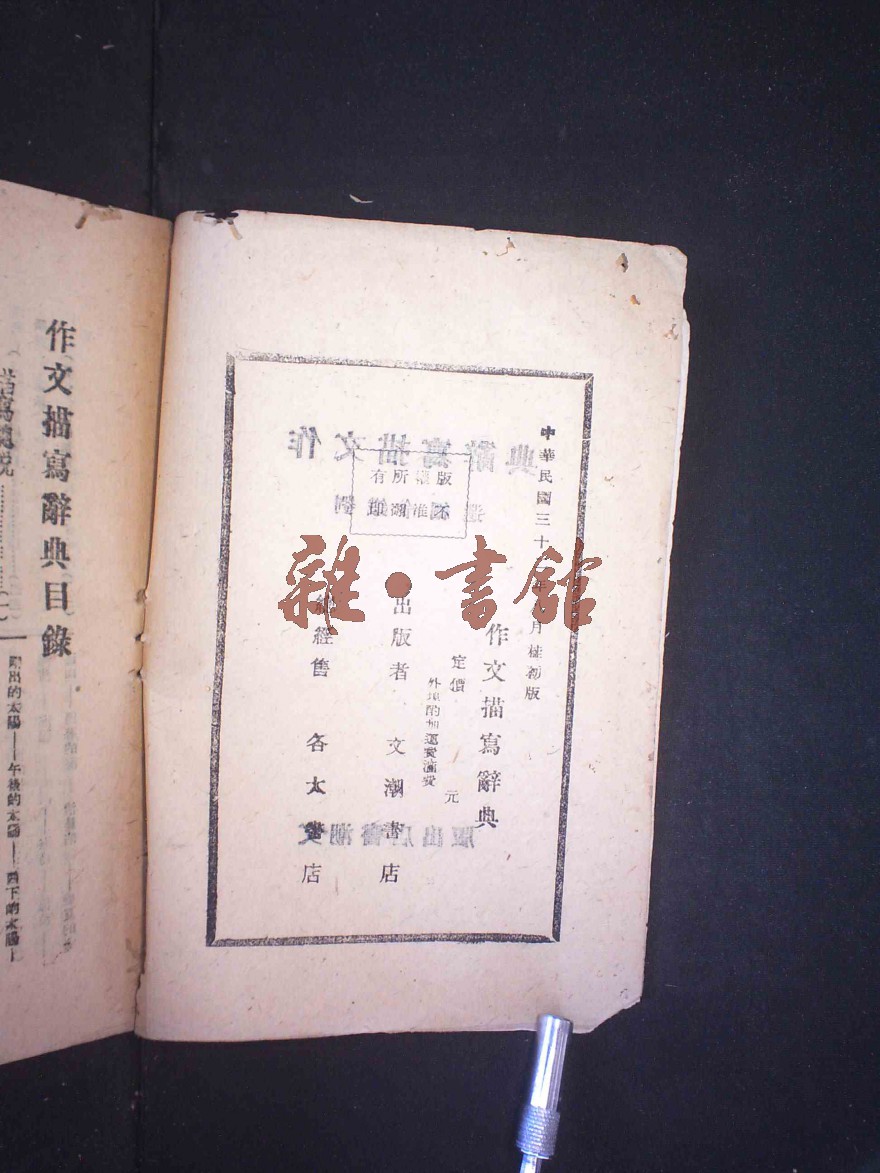 中華民國三十年月桂初版
作文描寫辭典
定價元
外埠酌加運費滙費
版權所有
不准翻印
出版者文潮書店
總經售各大書店
雜·書館
作文描寫辭典目錄
描寫總說
剛出的太陽——午後的太陽——西下的太陽